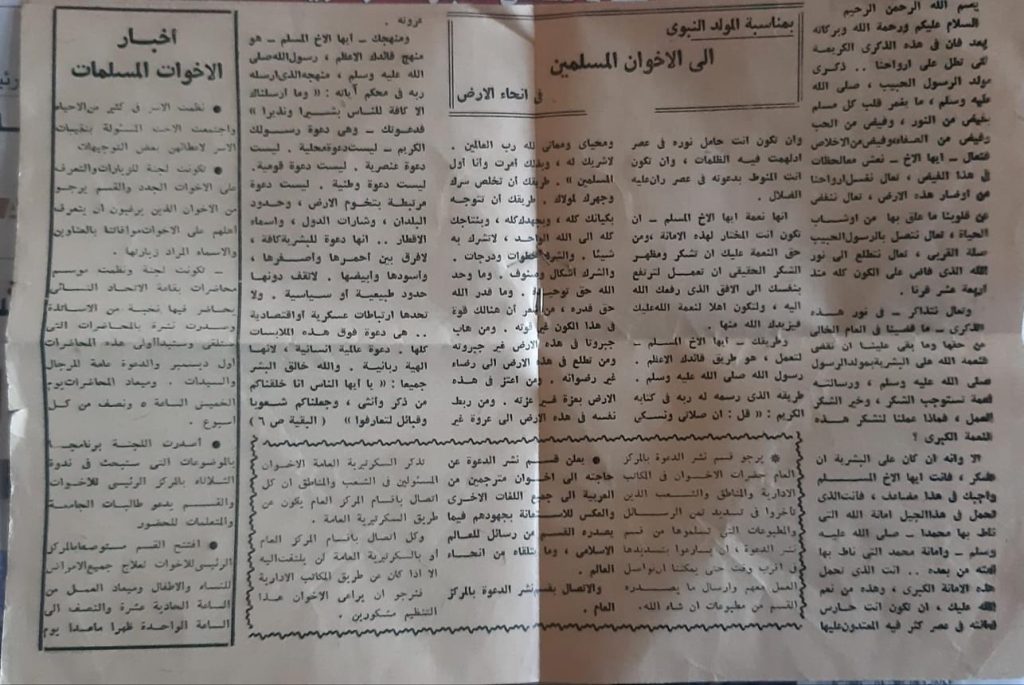 بمناسبة المولد النبوى
الى الاخوان المسلمين
فى انحاء الارض
بسم الله الرحمن الرحيم
السلام عليكم ورحمة الله وبركاته
وبعد فان فى هذه الذكرى الكريمة
التى تطل على ارواحنا .. ذكرى
مولد الرسول الحبيب ، صلى الله
عليه وسلم ، ما يغمر قلب كل مسلم
بفيض من النور ، وفيض من الحب
وفيض من الصفاء وفيض من الاخلاص
فتعال ـ ايها الاخ ـ نعش معا لحظات
فى هذا الفيض ، تعال نغسل ارواحنا
من اوضار هذه الارض ، تعال ننفض
عن قلوبنا ما علق بها من اوشاب
الحياة ، تعال نتصل بالرسول الحبيب
صلة القربى ، تعال نتطلع الى نور
الله الذى فاض على الكون كله منذ
اربعة عشر قرنا .
وتعال نتذاكر ـ فى نور هذه
الذكرى ـ ما قضينا فى العام الخالى
من حقها وما بقى علينا ان نقضى
النعمة الله على البشرية بمولد الرسول
صلى الله عليه وسلم ، ورسالته
نعمة تستوجب الشكر ، وخير الشكر
العمل ، فماذا عملنا لنشكر هذه
النعمة الكبرى ؟
الا وانه ان كان على البشرية ان
تشكر ، فانت ايها الاخ المسلم
واجبك فى هذا مضاعف ، فانت الذى
تحمل فى هذا الجيل امانة الله التى
ناط بها محمدا ـ صلى الله عليه
وسلم ـ وامانة محمد التى ناط بها
امته من بعده .. انت الذى تحمل
هذه الامانة الكبرى ، وهذه من نعم
الله عليك ، ان تكون انت حارس
امانته فى عصر كثر فيه المعتدون عليها
وان تكون انت حامل نوره فى عصر
ادلهمت فيه الظلمات ، وان تكون
انت المنوط بدعوته فى عصر ران عليه
الضلال .
انها نعمة ايها الاخ المسلم ـ ان
تكون انت المختار لهذه الامانة ، ومن
حق النعمة عليك ان تشكر ومظهر
الشكر الحقيقى ان تعمل لترتفع
بنفسك الى الافق الذى رفعك الله
اليه ، ولتكون اهلا لنعمة الله عليك
فيزيدك الله منها .
وطريقك ـ ايها الاخ المسلم ـ
لتعمل ، هو طريق قائدك الاعظم .
رسول الله صلى الله عليه وسلم .
طريقه الذى رسمه له ربه فى كتابه
الكريم : « قل : ان صلاتى ونسكى
ومحياى ومماتى لله رب العالمين .
لا شريك له ، وبذلك أمرت وأنا اول
المسلمين » . طريقك أن تخلص سرك
وجهرك لولاك . طريقك أن تتوجه
بكيانك كله ، وبجهدك كله ، وبنتاجك
كله الى الله الواحد ، لا تشرك به
شيئا . والشرك خطوات ودرجات .
والشرك اشكال وصنوف . وما وحد
الله حق توحيده . وما قدر الله
حق قدره ، من شعر أن هنالك قوة
فى هذا الكون غير قوته . ومن هاب
جبروتا فى هذه الارض غير جبروته
ومن تطلع فى هذه الارض الى رضاء
غير رضوانه . ومن اعتز فى هذه
الارض بعزة غير عزته . ومن ربط
نفسه فى هذه الارض الى عروة غير
عروته .
ومنهجك ـ ايها الاخ المسلم ـ هو
منهج قائدك الاعظم ، رسول الله صلى
الله عليه وسلم ، منهجه الذى ارسله
ربه فى محكم آياته : « وما ارسلناك
الا كافة للناس بشيرا ونذيرا »
فدعوتك ـ وهى دعوة رسولك
الكريم ـ ليست دعوة محلية . ليست
دعوة عنصرية . ليست دعوة قومية .
ليست دعوة وطنية . ليست دعوة
مرتبطة بتخوم الارض ، وحدود
البلدان ، وشارات الدول ، واسماء
الاقطار .. انها دعوة للبشرية كافة ،
لا فرق بين احمرها واصفرها ،
واسودها وابيضها . لا تقف دونها
حدود طبيعية او سياسية . ولا
تحدها ارتباطات عسكرية او اقتصادية
.. هى دعوة فوق هذه الملابسات
كلها . دعوة عالمية انسانية ، لانها
الهية ربانية .. والله خالق البشر
جميعا : « يا ايها الناس انا خلقناكم
من ذكر وأنثى ، وجعلناكم شعوبا
وقبائل لتعارفوا » ( البقية ص ٦ )
● يرجو قسم نشر الدعوة بالمركز
العام حضرات الاخوان فى المكاتب
الادارية والمناطق والشعب الذين
تأخروا فى تسديد ثمن الرسائل
والمطبوعات التى تسلموها من قسم
نشر الدعوة ، ان يسارعوا بتسديدها
فى اقرب وقت حتى يمكننا ان نواصل
العمل معهم وارسال ما يصدره
القسم من مطبوعات ان شاء الله .
● يعلن قسم نشر الدعوة عن
حاجته الى اخوان مترجمين من
العربية الى جميع اللغات الاخرى
والعكس للاستعانة بجهودهم فيما
يصدره القسم من رسائل للعالم
الاسلامى ، وما يتلقاه من انحاء
العالم .
والاتصال بقسم نشر الدعوة بالمركز
العام .
تذكر السكرتيرية العامة الاخوان
المسئولين فى الشعب والمناطق ان كل
اتصال باقسام المركز العام يكون عن
طريق السكرتيرية العامة .
وكل اتصال باقسام المركز العام
أو بالسكرتيرية العامة لن يلتفت اليه
الا اذا كان عن طريق المكاتب الادارية
فنرجو ان يراعى الاخوان هذا
التنظيم مشكورين .
أخبار
الاخوات المسلمات
● نظمت الاسر فى كثير من الاحياء
واجتمعت الاخت المسئولة بنقيبات
الاسر لاعطائهن بعض التوجيهات
● تكونت لجنة للزيارات والتعرف
على الاخوات الجدد والقسم يرجو
من الاخوان الذين يرغبون ان يتعرف
اهلهم على الاخوات موافاتنا بالعناوين
والاسماء المراد زيارتها .
ـ تكونت لجنة ونظمت موسم
محاضرات بقاعة الاتحاد النسائى
يحاضر فيها نخبة من الاساتذة
وصدرت نشرة بالمحاضرات التى
ستلقى وستبدأ اولى هذه المحاضرات
اول ديسمبر والدعوة عامة للرجال
والسيدات . وميعاد المحاضرات يوم
الخميس الساعة ٥ ونصف من كل
اسبوع .
● أصدرت اللجنة برنامجا
بالموضوعات التى ستبحث فى ندوة
الثلاثاء بالمركز الرئيسى للاخوات
والقسم يدعو طالبات الجامعة
والمتعلمات للحضور
● افتتح القسم مستوصفا بالمركز
الرئيسى للاخوات لعلاج جميع الامراض
للنساء والاطفال وميعاد العمل من
الساعة الحادية عشرة والنصف الى
الساعة الواحدة ظهرا ماعدا يوم